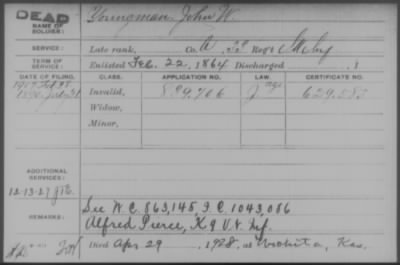 DEAD
NAME OF SOLDIER: Youngman, John W.
SERVICE: Late rank, Co. A, 23 Reg't
TERM OF SERVICE: Enlisted Feb. 22, 1864 Discharged , 1
DATE OF FILING. CLASS. APPLICATION NO. LAW. CERTIFICATE NO.
1890, Invalid, 899,706 629,583
Widow,
Minor,
ADDITIONAL SERVICES:
12-13-27
See W.C. 863,145, I.C. 1,043,086
REMARKS: Alfred Pierce, K 9 U.S. Inf.
Died Apr 29, 1928, at Wichita, Kas.